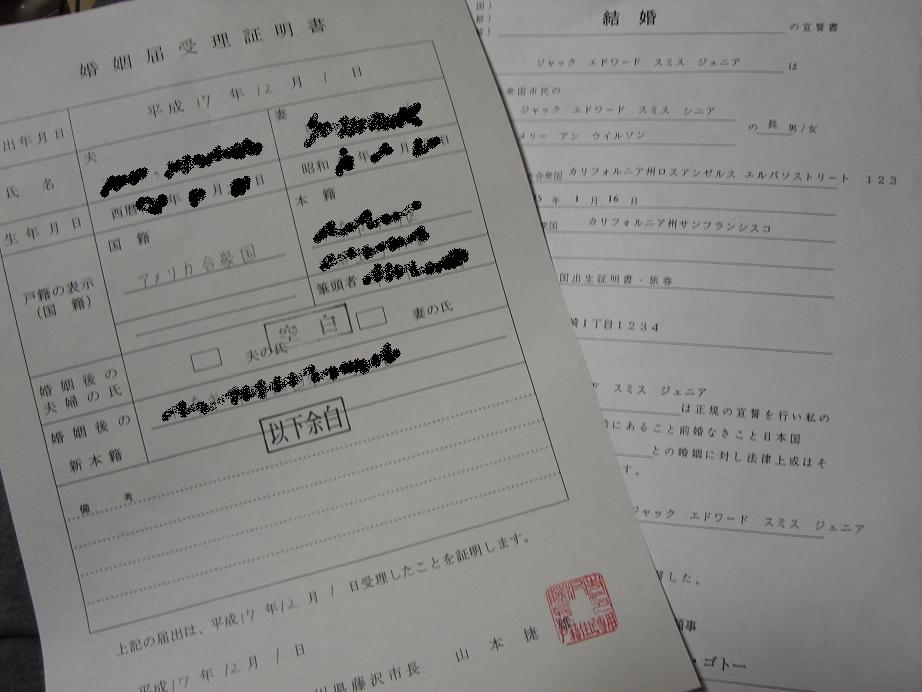 婚姻届受理証明書
出年月日 平成17年12月1日
氏名 夫 妻
生年月日 西暦 年 月 日 昭和 年 月 日
戸籍の表示
（国籍）
国籍
アメリカ合衆国
本籍
筆頭者
婚姻後の
夫婦の氏
夫の氏 空白 妻の氏
婚姻後の
新本籍
以下余白
備考
上記の届出は、平成17年12月1日受理したことを証明します。
平成17年12月1日
川県藤沢市長 山本捷雄
国）
結婚 の宣誓書
ジャック エドワード スミス ジュニア は
衆国市民の
ジャック エドワード スミス シニア
メリー アン ウイルソン の長男/女
合衆国 カリフォルニア州ロスアンゼルス エルパソストリート 123
5年1月16日
衆国 カリフォルニア州サンフランシスコ
国出生証明書・旅券
1丁目1234
スミス ジュニア
は正規の宣誓を行い私の
にあること前婚なきこと日本国
との婚姻に対し法律上或はそ
す。
ジャック エドワード スミス ジュニア
した。
領事
・ゴトー